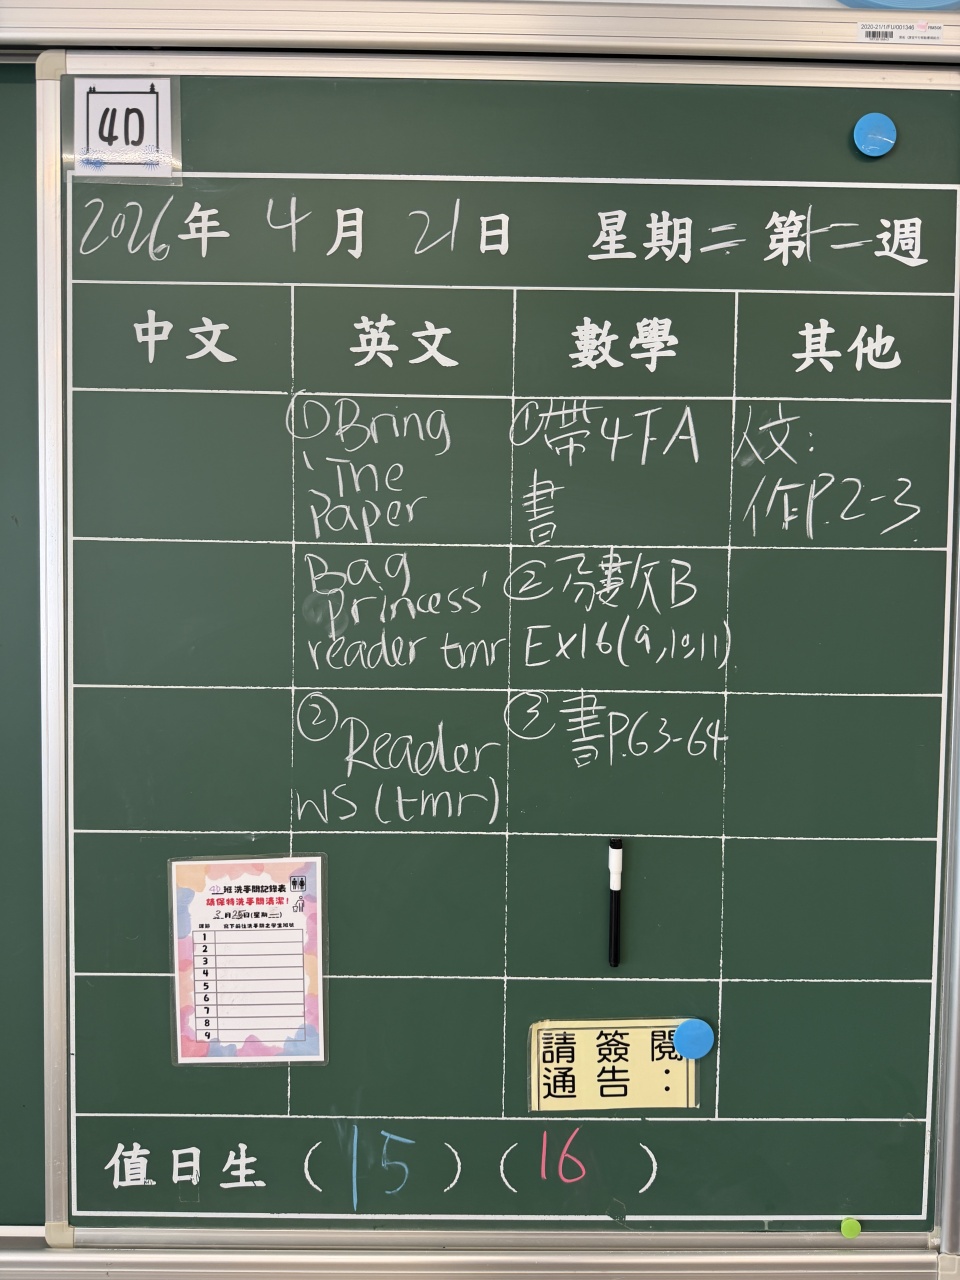 2020-21/1/FU/001346
4D
2026年 4月 21日 星期二 第十二週
中文 英文 數學 其他
①Bring
'The
Paper
Bag
Princess'
reader tmr
②
Reader
WS (tmr)
①帶4下A
書
②分數欠B
Ex16(9,10,11)
③書P.63-64
人文:
作P.2-3.
4D班洗手間記錄表
請保持洗手間清潔!
3月25日(星期三)
課節 寫下前往洗手間之學生班號
1
2
3
4
5
6
7
8
9
請簽閱
通告:
值日生 (15) (16)